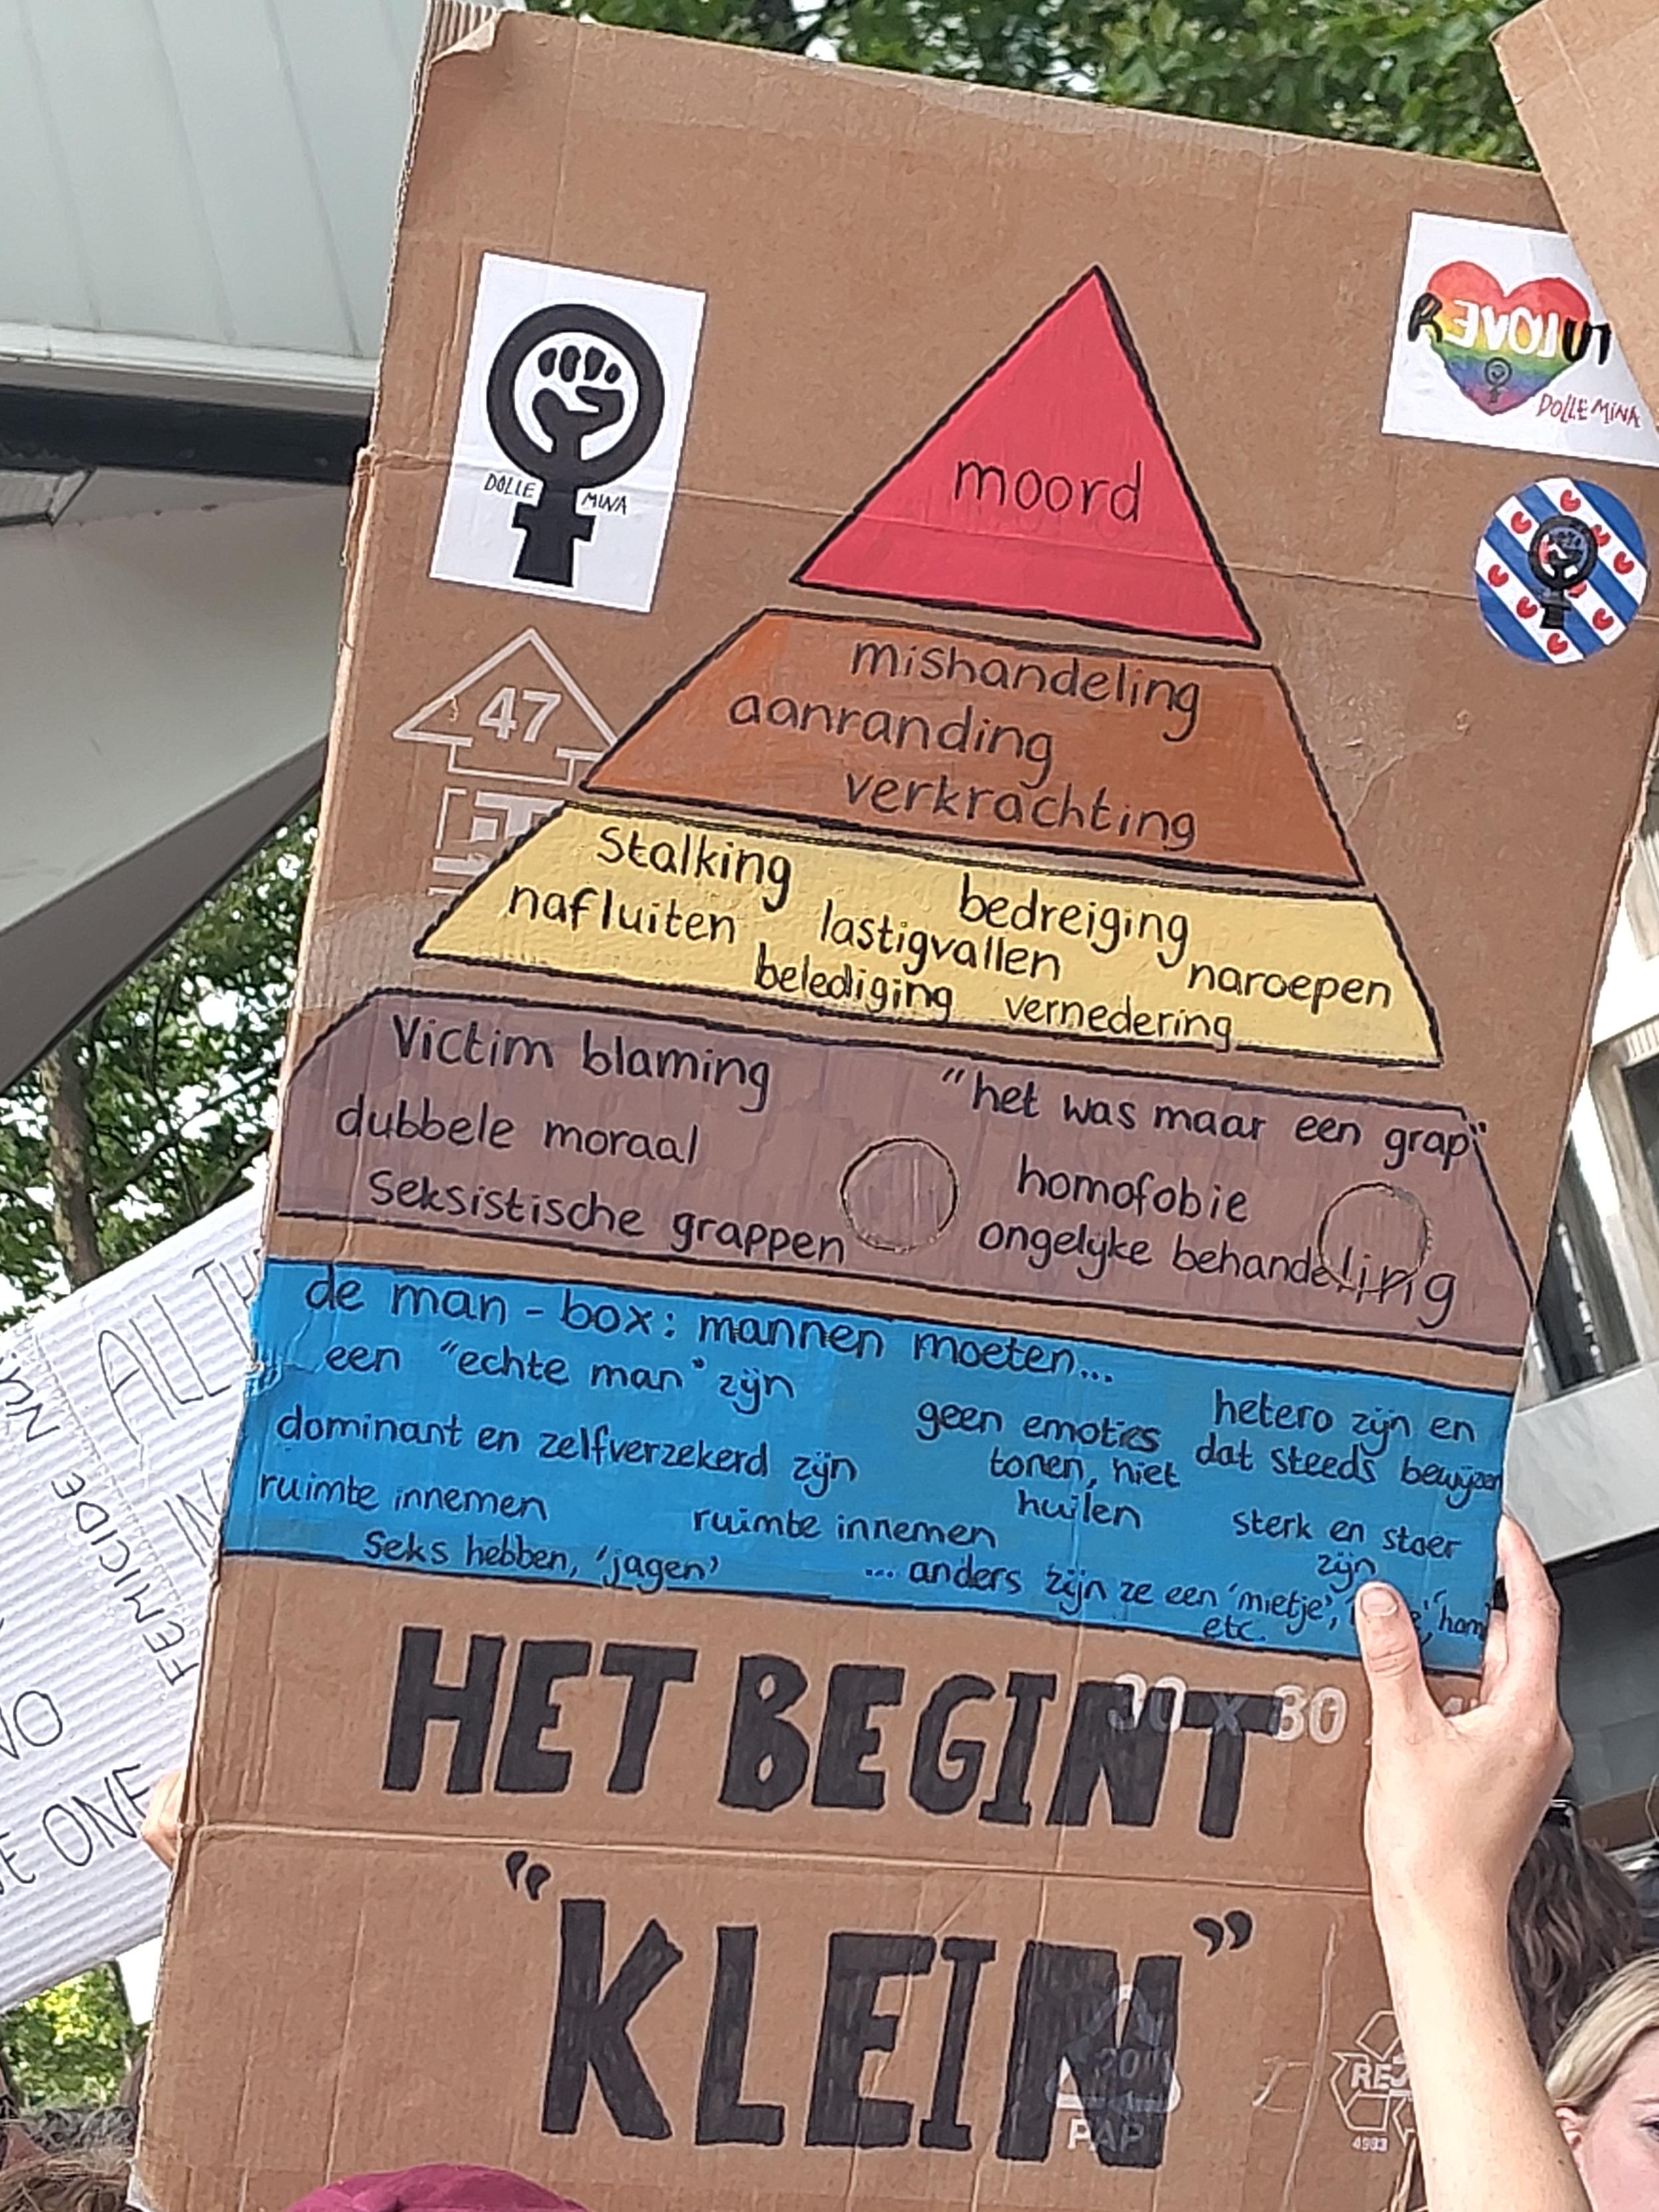 REVOLUT
DOLLE MINA
DOLLE MINA
moord
47
mishandeling
aanranding
verkrachting
Stalking bedreiging
nafluiten lastigvallen naroepen
belediging vernedering
Victim blaming "het was maar een grap"
dubbele moraal homofobie
Seksistische grappen ongelijke behandeling
de man-box: mannen moeten...
een "echte man" zijn
geen emoties
tonen, niet
huilen
hetero zijn en
dat steeds bewijzen
dominant en zelfverzekerd zijn
ruimte innemen
ruimte innemen
sterk en stoer
zijn
Seks hebben, 'jagen'
... anders zijn ze een 'mietje', 'hom
etc.
HET BEGINT
"KLEIN"
PAP
4983
ALL
IN
FEMICIDE
ONE